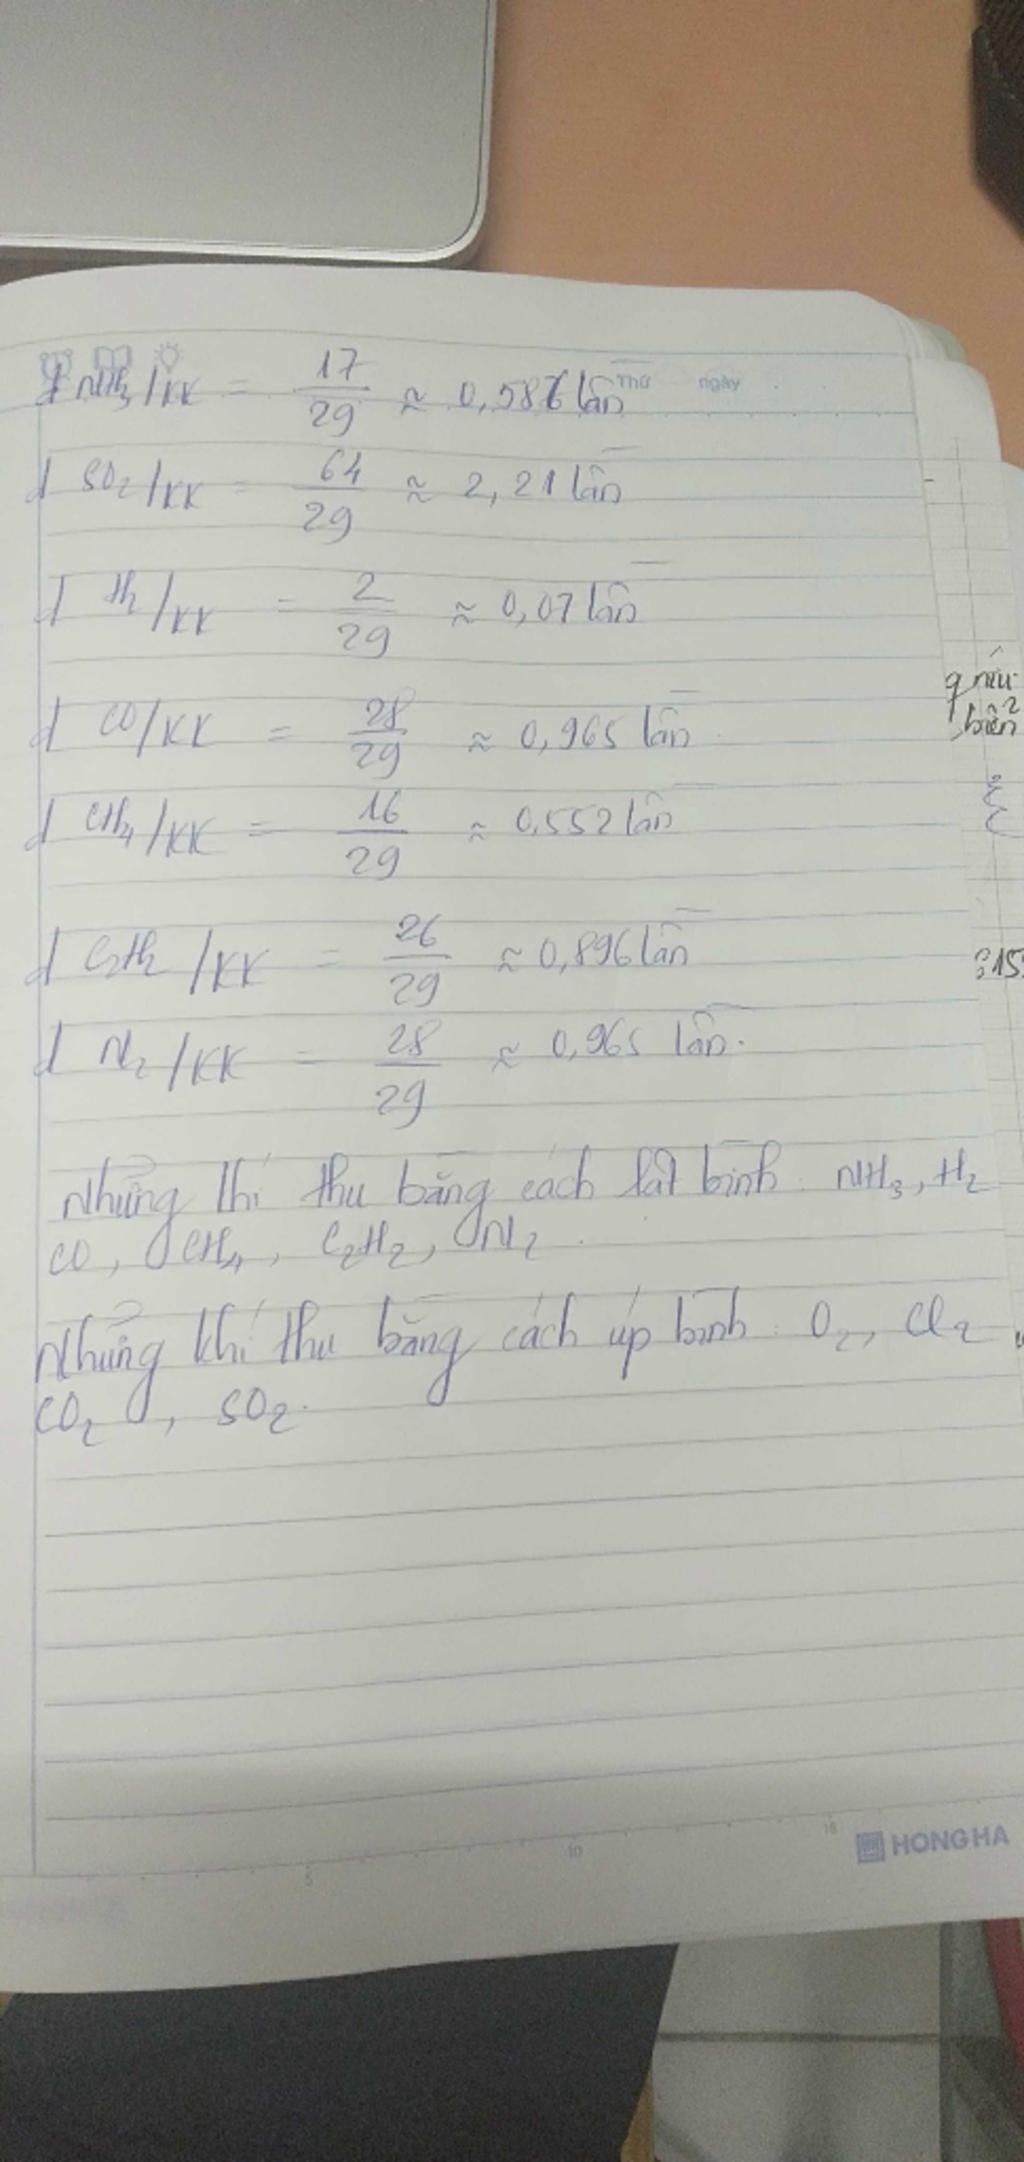 Thứ ngày
d NH3/KK = 17/29 ≈ 0,586 lần
d SO2/KK = 64/29 ≈ 2,21 lần
d H2/KK = 2/29 ≈ 0,07 lần
d CO/KK = 28/29 ≈ 0,965 lần
d CH4/KK = 16/29 ≈ 0,552 lần
d C2H2/KK = 26/29 ≈ 0,896 lần
d N2/KK = 28/29 ≈ 0,965 lần.
Những khí thu bằng cách lật bình: NH3, H2
CO, CH4, C2H2, N2.
Những khí thu bằng cách úp bình: O2, Cl2
CO2, SO2.
5 10 15
HONG HA